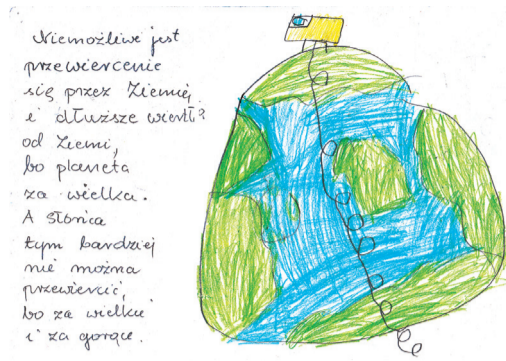 Niemożliwe jest
przewiercenie
się przez Ziemię
i dłuższe wiertł?
od Ziemi,
bo planeta
za wielka.
A słońca
tym bardziej
nie można
przewiercić,
bo za wielkie
i za gorące.